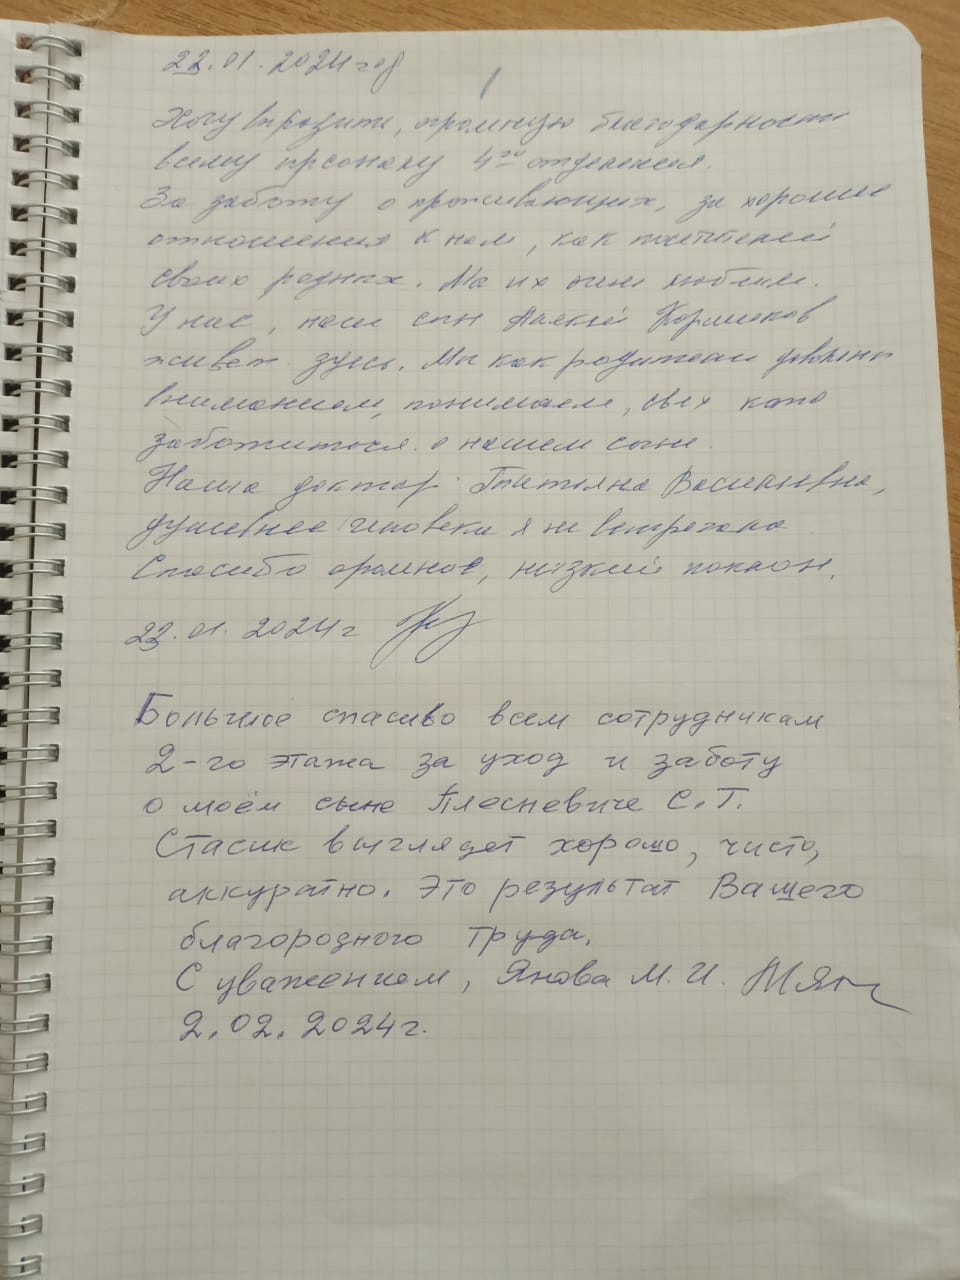 22.01.2024 год
Хочу выразить, огромную благодарность
всему прсоналу 4го отделения.
За заботу о проживающих, за хорошее
отношения к нам, как
своих родных. Мы их очень любим.
У нас, наш сын Кормшков
живет здесь. Мы как родители довольны
вниманием, понимаем, как
заботиться о нашем сыне.
Наша доктор Татьяна Васильевна,
душевнее человека я не встречала
Спасибо огромное, низкий поклон.
22.01.2024 г
Большое спасибо всем сотрудникам
2-го этажа за уход и заботу
о моём сыне Плесневиче С.Г.
Стасик выглядет хорошо, чисто,
аккуратно. Это результат Вашего
благородного труда.
С уважением, Янова М.И.
2.02.2024г.